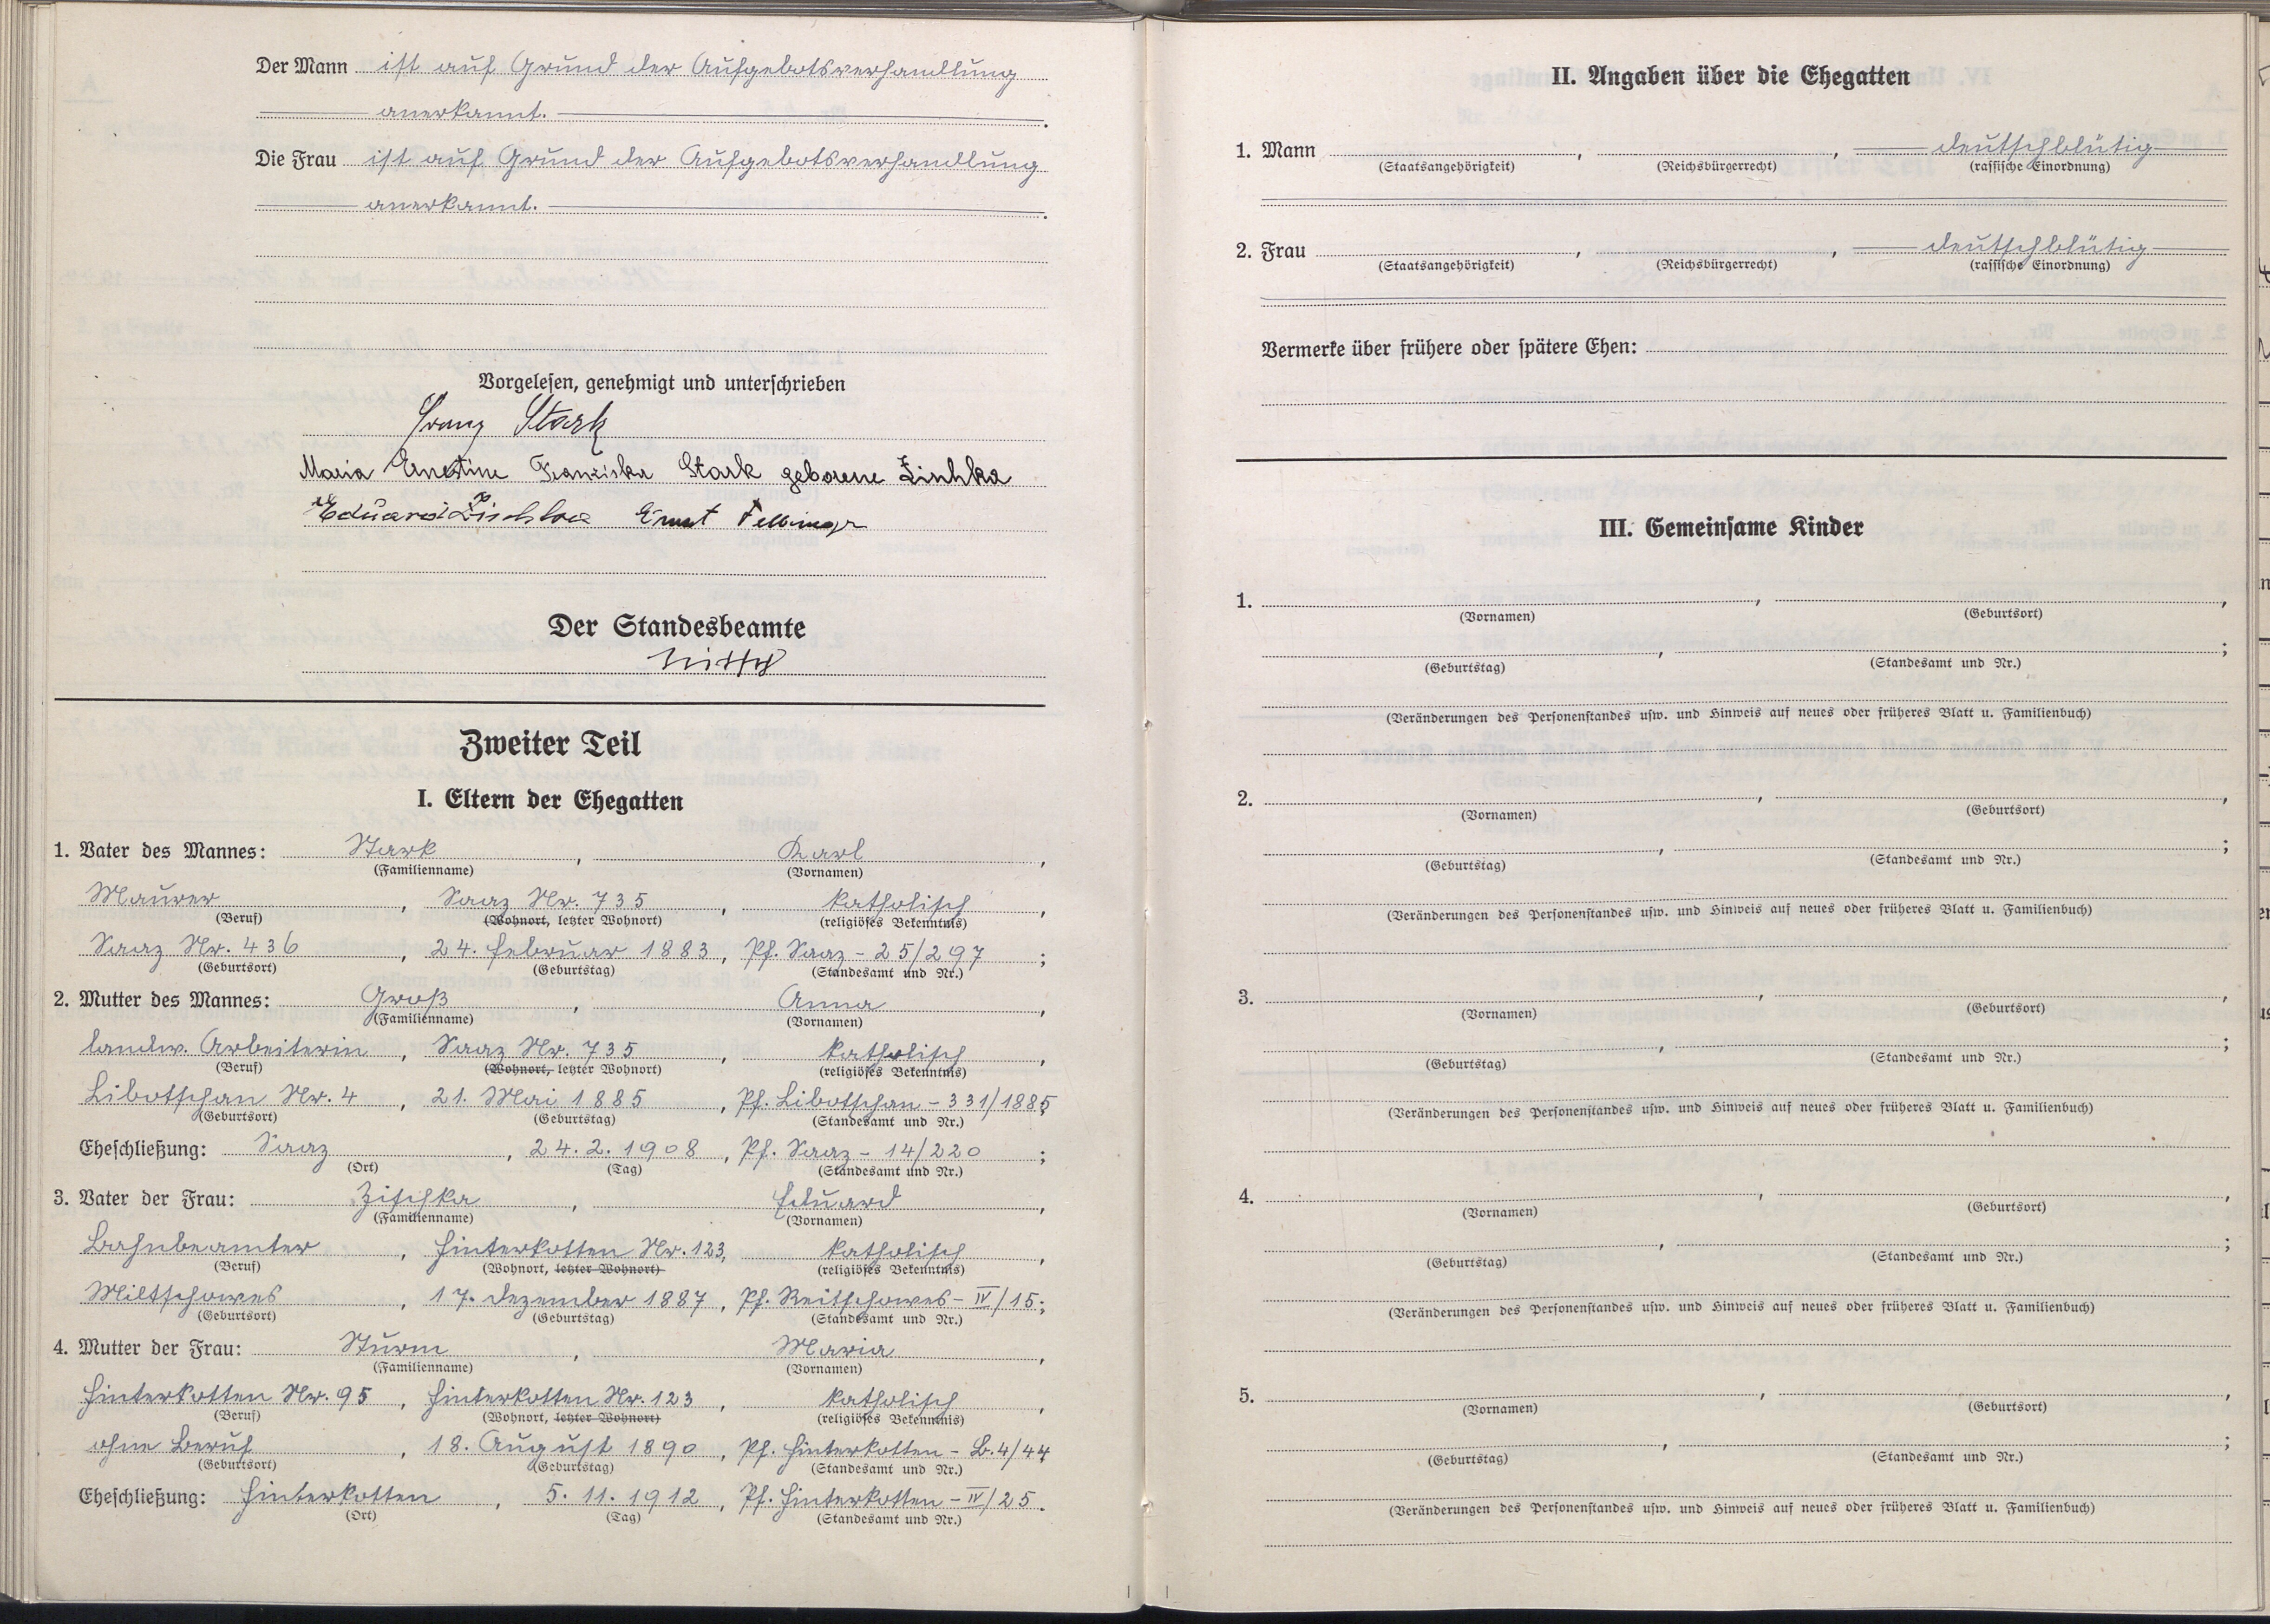 Der Mann ist auf Grund der Aufgebotsverhandlung
anerkannt.
Die Frau ist auf Grund der Aufgebotsverhandlung
anerkannt.
Vorgelesen, genehmigt und unterschrieben
Franz Stark
Maria Ernestine Franziska Stark geborene Zischka
Eduard Zischka Ernst
Der Standesbeamte
Zweiter Teil
I. Eltern der Ehegatten
1. Vater des Mannes: Stark, Karl,
(Familienname) (Vornamen)
Maurer, Saaz Nr. 735, katholisch,
(Beruf) (Wohnort, letzter Wohnort) (religiöses Bekenntnis)
Saaz Nr. 436, 24. Februar 1883, Pf. Saaz - 25/297;
(Geburtsort) (Geburtstag) (Standesamt und Nr.)
2. Mutter des Mannes: Groß, Anna,
(Familienname) (Vornamen)
landw. Arbeiterin, Saaz Nr. 735, katholisch,
(Beruf) (Wohnort, letzter Wohnort) (religiöses Bekenntnis)
Libotschan Nr. 4, 21. Mai 1885, Pf. Libotschan - 331/1885;
(Geburtsort) (Geburtstag) (Standesamt und Nr.)
Eheschließung: Saaz, 24. 2. 1908, Pf. Saaz - 14/220;
(Ort) (Tag) (Standesamt und Nr.)
3. Vater der Frau: Zischka, Eduard,
(Familienname) (Vornamen)
Bahnbeamter, Hinterkotten Nr. 123, katholisch,
(Beruf) (Wohnort, letzter Wohnort) (religiöses Bekenntnis)
Miltschowes, 17. Dezember 1887, Pf. Reitschowes - IV/15;
(Geburtsort) (Geburtstag) (Standesamt und Nr.)
4. Mutter der Frau: Sturm, Maria,
(Familienname) (Vornamen)
Hinterkotten Nr. 95, Hinterkotten Nr. 123, katholisch,
(Beruf) (Wohnort, letzter Wohnort) (religiöses Bekenntnis)
ohne Beruf, 18. August 1890, Pf. Hinterkotten - B. 4/44;
(Geburtsort) (Geburtstag) (Standesamt und Nr.)
Eheschließung: Hinterkotten, 5. 11. 1912, Pf. Hinterkotten - IV/25.
(Ort) (Tag) (Standesamt und Nr.)
II. Angaben über die Ehegatten
1. Mann , , deutschblütig
(Staatsangehörigkeit) (Reichsbürgerrecht) (rassische Einordnung)
2. Frau , , deutschblütig
(Staatsangehörigkeit) (Reichsbürgerrecht) (rassische Einordnung)
Vermerke über frühere oder spätere Ehen:
III. Gemeinsame Kinder
1. , ,
(Vornamen) (Geburtsort)
, ;
(Geburtstag) (Standesamt und Nr.)
(Veränderungen des Personenstandes usw. und Hinweis auf neues oder früheres Blatt u. Familienbuch)
2. , ,
(Vornamen) (Geburtsort)
, ;
(Geburtstag) (Standesamt und Nr.)
(Veränderungen des Personenstandes usw. und Hinweis auf neues oder früheres Blatt u. Familienbuch)
3. , ,
(Vornamen) (Geburtsort)
, ;
(Geburtstag) (Standesamt und Nr.)
(Veränderungen des Personenstandes usw. und Hinweis auf neues oder früheres Blatt u. Familienbuch)
4. , ,
(Vornamen) (Geburtsort)
, ;
(Geburtstag) (Standesamt und Nr.)
(Veränderungen des Personenstandes usw. und Hinweis auf neues oder früheres Blatt u. Familienbuch)
5. , ,
(Vornamen) (Geburtsort)
, ;
(Geburtstag) (Standesamt und Nr.)
(Veränderungen des Personenstandes usw. und Hinweis auf neues oder früheres Blatt u. Familienbuch)